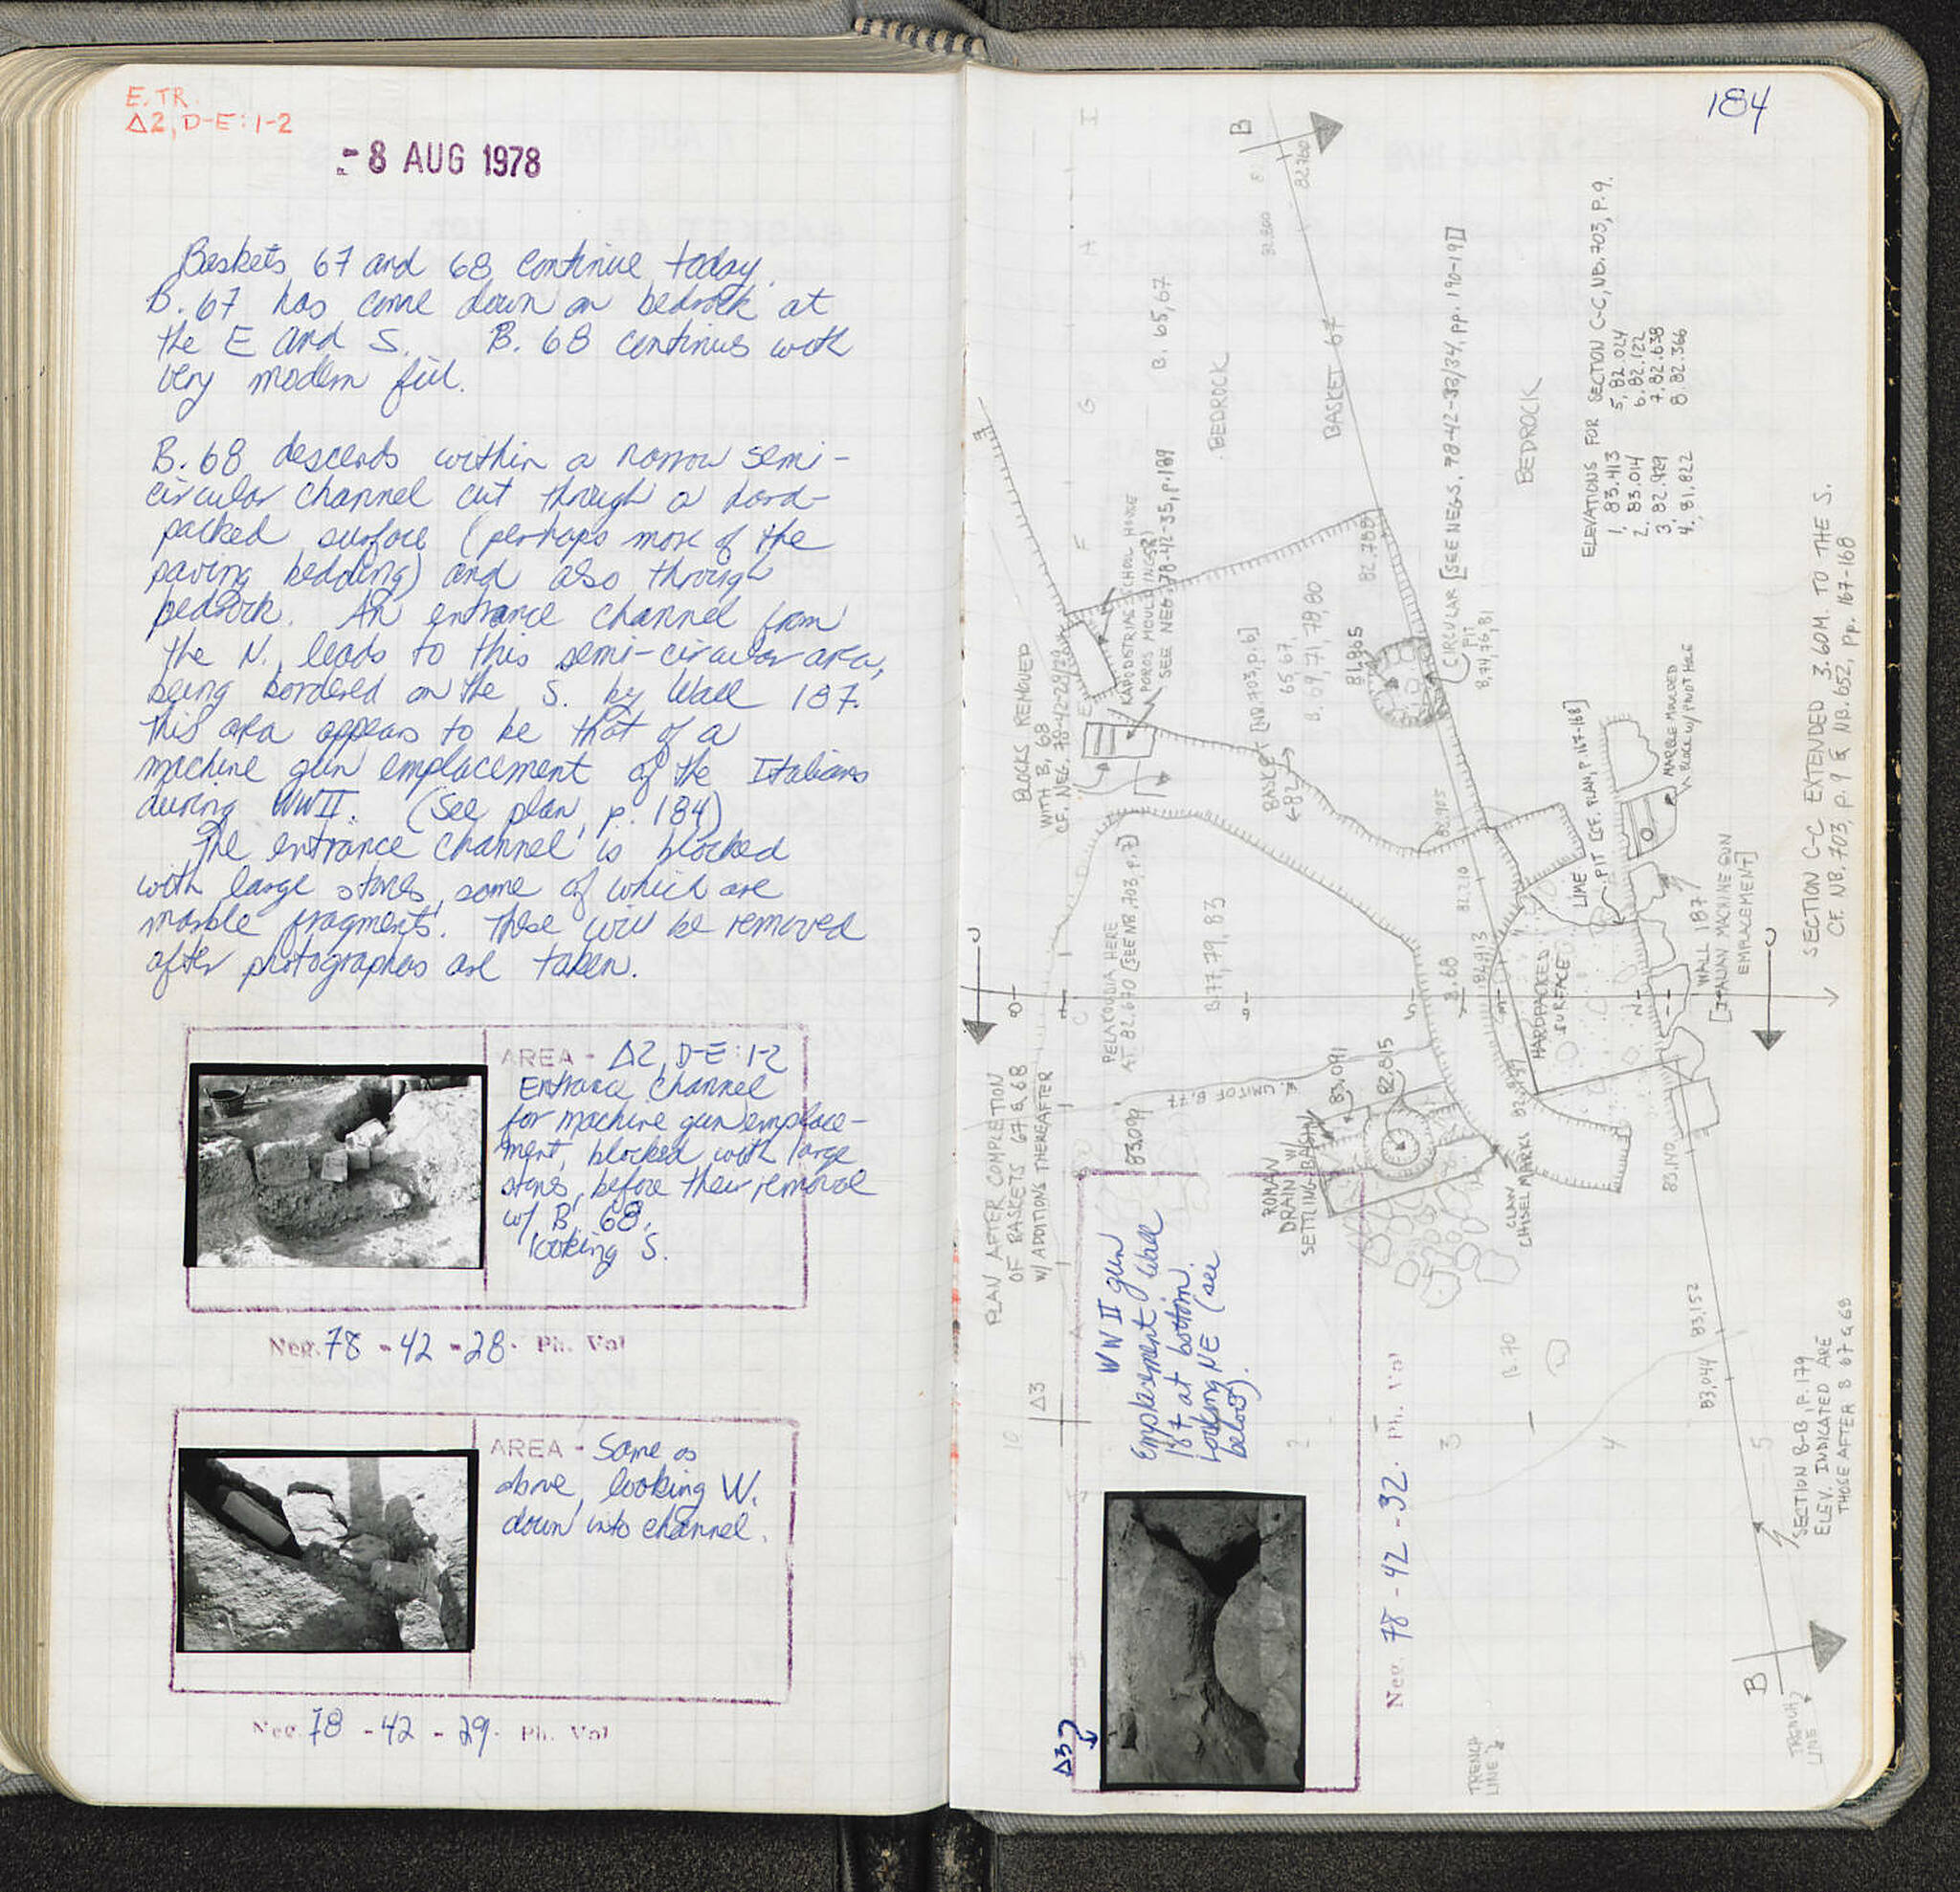 E. TR.
Δ2, D-E:1-2
-8 AUG 1978
Baskets 67 and 68 continue today.
B. 67 has come down on bedrock at
the E and S. B. 68 continues with
very modern fill.
B. 68 descends within a narrow semi-
circular channel cut through a hard-
packed surface (perhaps more of the
paving bedding) and also through
bedrock. An entrance channel from
the N. leads to this semi-circular area,
being bordered on the S. by Wall 187.
This area appears to be that of a
machine gun emplacement of the Italians
during WWII. (See plan, p. 184)
The entrance channel is blocked
with large stones, some of which are
marble fragments. These will be removed
after photographs are taken.
AREA - Δ2, D-E:1-2
Entrance Channel
for machine gun emplace-
ment, blocked with large
stones, before their removal
w/ B. 68.
looking S.
Neg. 78 - 42 - 28. Ph. Vol
AREA - Same as
above, looking W.
down into channel.
Neg. 78 - 42 - 29. Ph. Vol
184
PLAN AFTER COMPLETION
OF BASKETS 67 & 68
W/ ADDITIONS THEREAFTER
BLOCKS REMOVED
WITH B. 68
CF. NEG. 78-42-28/29
KAPODISTRIAS SCHOOL HOUSE
POROS MOULDINGS
SEE NEG. 78-42-35, p.189
B. 65, 67
BEDROCK
BASKET 67
BEDROCK
B
82.760
82.800
82.788
CIRCULAR [SEE NEGS. 78-42-33/34, pp. 190-191]
PIT
B. 74, 76, 81
ELEVATIONS FOR SECTION C-C, NB. 703, P. 9.
1. 83.413 5. 82.024
2. 83.014 6. 82.122
3. 82.929 7. 82.638
4. 81.822 8. 82.366
BASKET [NB 703 p. 6]
82
65, 67,
B. 69, 71, 78, 80
81.865
82.905
82.210
PELAKOUDIA HERE
AT 82.670 [SEE NB. 703, p. 7]
B. 77, 79, 83
B. 68
LIME
PIT [CF. PLAN, P. 167-168]
MARBLE MOULDED
BLOCK W/ PIVOT HOLE
HARDPACKED
SURFACE
WALL 187
[ITALIAN MACHINE GUN
EMPLACEMENT]
SECTION C-C EXTENDED 3.60M. TO THE S.
CF. NB. 703, p. 9 & NB. 652, pp. 167-168
C
C
LIMIT OF B. 77
83.099
83.091
82.815
ROMAN
DRAIN W/
SETTLING-BASIN
CLAW
CHISEL MARKS
83.140
83.152
83.044
B. 70
Δ3
10
2
3
4
5
WW II gun
Emplacement Wall
187 at bottom.
Looking NE (see
below).
Neg. 78 - 42 - 32. Ph. Vol
Δ3
SECTION B-B, P. 179
ELEV. INDICATED ARE
THOSE AFTER B 67 & 69
B
TRENCH
LINE
TRENCH
LINE